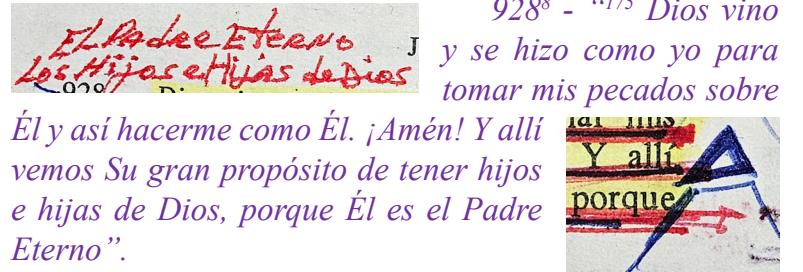 EL Padre Eterno
Los Hijos e Hijas de Dios
J
928⁸ - “¹⁷⁵ Dios vino
y se hizo como yo para
tomar mis pecados sobre
Él y así hacerme como Él. ¡Amén! Y allí
vemos Su gran propósito de tener hijos
e hijas de Dios, porque Él es el Padre
Eterno”.
mis
Y allí
porque